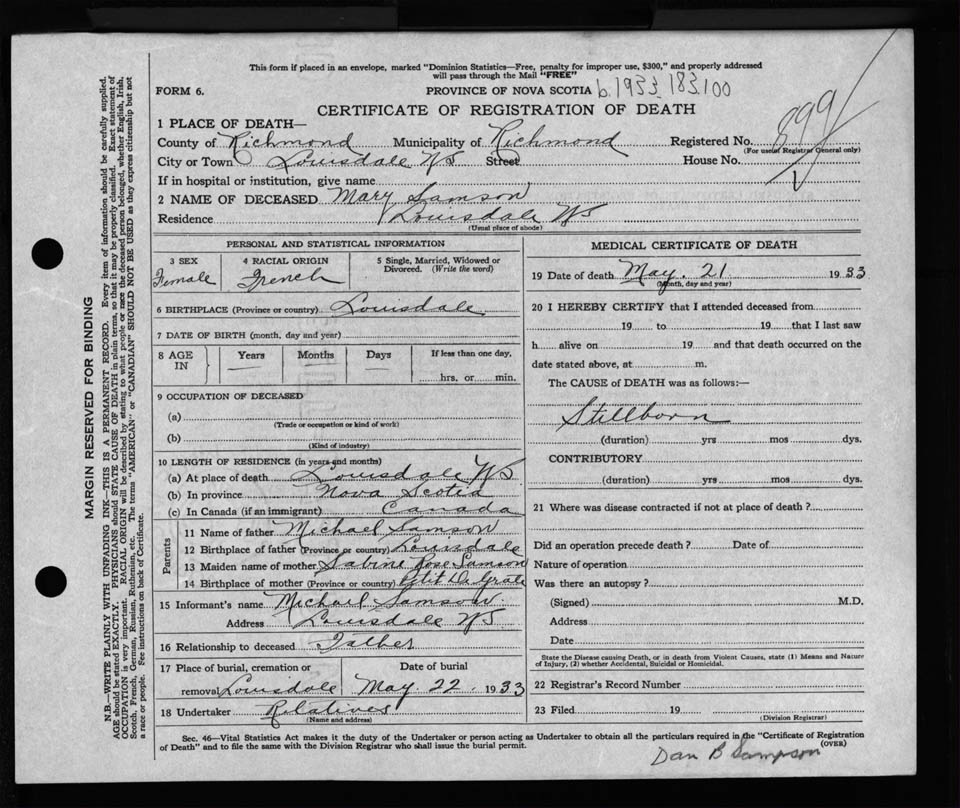 This form if placed in an envelope, marked "Dominion Statistics—Free, penalty for improper use, $300," and properly addressed
will pass through the Mail "FREE"
FORM 6. PROVINCE OF NOVA SCOTIA b. 1933 183 100
CERTIFICATE OF REGISTRATION OF DEATH
899
1 PLACE OF DEATH—
County of Richmond Municipality of Richmond Registered No.
(For use of Registrar General only)
City or Town Louisdale NS Street House No.
If in hospital or institution, give name
2 NAME OF DECEASED Mary Samson
Residence Louisdale NS
(Usual place of abode)
PERSONAL AND STATISTICAL INFORMATION
3 SEX 4 RACIAL ORIGIN 5 Single, Married, Widowed or
Divorced. (Write the word)
Female French
6 BIRTHPLACE (Province or country) Louisdale
7 DATE OF BIRTH (month, day and year)
8 AGE IN Years Months Days If less than one day,
— — — hrs. or min.
9 OCCUPATION OF DECEASED
(a)
(Trade or occupation or kind of work)
(b)
(Kind of industry)
10 LENGTH OF RESIDENCE (in years and months)
(a) At place of death Louisdale NS
(b) In province Nova Scotia
(c) In Canada (if an immigrant) Canada
Parents
11 Name of father Michael Samson
12 Birthplace of father (Province or country) Louisdale
13 Maiden name of mother Sabine Rose Samson
14 Birthplace of mother (Province or country) Petit D. Grate
15 Informant's name Michael Samson
Address Louisdale NS
16 Relationship to deceased Father
17 Place of burial, cremation or Date of burial
removal Louisdale May 22 1933
18 Undertaker Relatives
(Name and address)
MEDICAL CERTIFICATE OF DEATH
19 Date of death May. 21 1933
(Month, day and year)
20 I HEREBY CERTIFY that I attended deceased from
19 to 19 that I last saw
h alive on 19 and that death occurred on the
date stated above, at m.
The CAUSE of DEATH was as follows:—
Stillborn
(duration) yrs mos dys.
CONTRIBUTORY
(duration) yrs. mos. dys.
21 Where was disease contracted if not at place of death?
Did an operation precede death? Date of
Nature of operation
Was there an autopsy?
(Signed) M.D.
Address
Date
State the Disease causing Death, or in death from Violent Causes, state (1) Means and Nature
of Injury, (2) whether Accidental, Suicidal or Homicidal.
22 Registrar's Record Number
23 Filed 19
(Division Registrar)
Sec. 46—Vital Statistics Act makes it the duty of the Undertaker or person acting as Undertaker to obtain all the particulars required in the "Certificate of Registration
of Death" and to file the same with the Division Registrar who shall issue the burial permit. (OVER)
Dan B Sampson
MARGIN RESERVED FOR BINDING
N.B.—WRITE PLAINLY WITH UNFADING INK—THIS IS A PERMANENT RECORD. Every item of information should be carefully supplied.
AGE should be stated EXACTLY. PHYSICIANS should STATE CAUSE OF DEATH in plain terms, so that it may be properly classified. Exact statement of
OCCUPATION is very important. RACIAL ORIGIN will be described by stating to what people or race the deceased person belonged, whether English, Irish,
Scotch, French, German, Russian, Ruthenian, etc. The terms "AMERICAN" or "CANADIAN" SHOULD NOT BE USED as they express citizenship but not
a race or people. See instructions on back of Certificate.